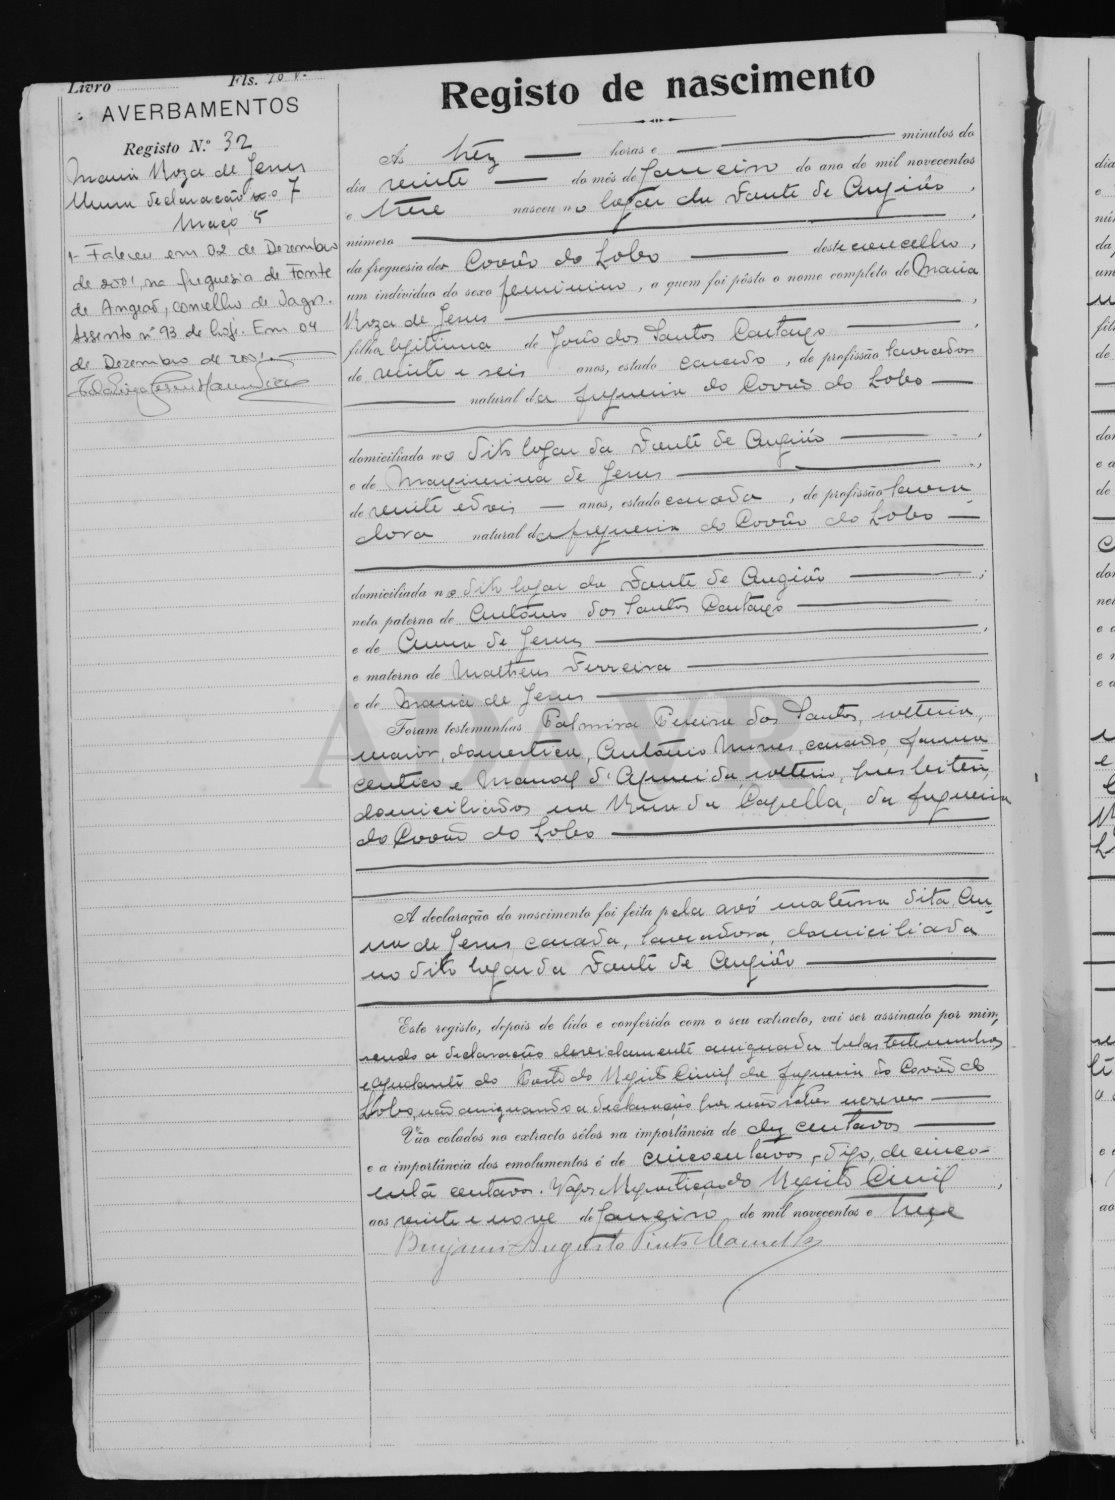 Livro Fls. 70 v.
AVERBAMENTOS
Registo N.º 32
Maria Roza de Jesus
Numa declaração no 7
Maço 5
1- Faleceu em 02 de Dezembro
de 2001, na freguesia de Fonte
de Angeão, concelho de Vagos.
Assento nº 93 de hoje. Em 04
de Dezembro de 2001
Registo de nascimento
Às tréz horas e minutos do
dia vinte do mês de Janeiro do ano de mil novecentos
e treze nasceu no logar da Fonte de Angião,
número
da freguesia do Covão do Lobo deste concelho,
um indivíduo do sexo feminino, a quem foi pôsto o nome completo de Maria
Roza de Jesus
filha legitima de João dos Santos Cantargo
de vinte e seis anos, estado casado, de profissão lavrador
natural da freguesia do Covão do Lobo
domiciliado no dito logar da Fonte de Angião
e de Maximina de Jesus
de vinte e dois anos, estado casada, de profissão lavra
dora natural da freguesia do Covão do Lobo
domiciliada no dito logar da Fonte de Angião ;
neto paterno de António dos Santos Cantargo
e de Anna de Jesus
e materno de Matheus Ferreira
e de Maria de Jesus
Foram testemunhas Palmira Pereira dos Santos, solteira,
maior, domestica, António Nunes, casado, farma
ceutico e Manoel d'Almeida, solteiro, presbitero,
domiciliados na Rua da Capella, da freguesia
do Covão do Lobo
A declaração do nascimento foi feita pela avó materna dita, An
na de Jesus, casada, lavradora, domiciliada
no dito logar da Fonte de Angião
Este registo, depois de lido e conferido com o seu extracto, vai ser assinado por mim,
sendo a declaração devidamente assignada pelas testemunhas
e ajudante do Posto do Registo Civil da freguesia do Covão do
Lobo, não assignando a declarante por não saber escrever
Vão colados no extracto sêlos na importância de dez centavos
e a importância dos emolumentos é de cinco centavos, digo, de cinco-
enta centavos. Vagos Repartição do Registo Civil,
aos vinte e nove de Janeiro de mil novecentos e treze
Benjamim Augusto Pinto
ADAVR